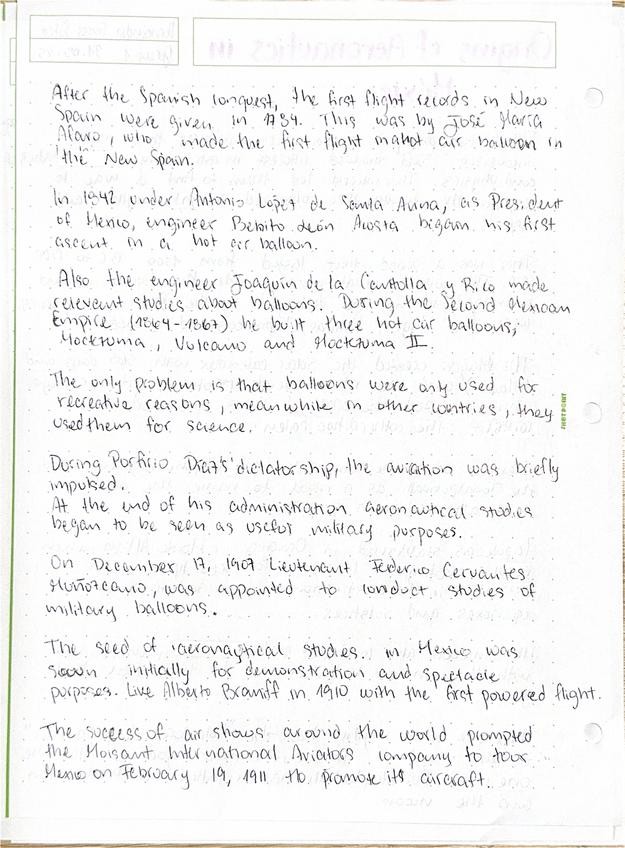 After the Spanish conquest, the first flight records in New
Spain were given in 1784. This was by José María
Alfaro, who made the first flight in a hot air balloon in
the New Spain.
In 1842 under Antonio López de Santa Anna, as President
of Mexico, engineer Benito León Acosta began his first
ascent in a hot air balloon.
Also the engineer Joaquín de la Cantolla y Rico made
relevent studies about balloons. During the Second Mexican
Empire (1864-1867) he built three hot air balloons;
Moctezuma, Vulcano and Moctezuma II.
The only problem is that balloons were only used for
recreative reasons, meanwhile in other contries, they
used them for science.
During Porfirio Díaz's dictatorship, the aviation was briefly
impulsed.
At the end of his administration aeronautical studies
began to be seen as useful military purposes.
On December 17, 1909 Lieutenant Federico Cervantes
Muñozcano, was appointed to conduct studies of
military balloons.
The seed of aeronaytical studies in Mexico was
sown initially for demonstration and spectacle
purposes. Live Alberto Braniff in 1910 with the first powered flight.
The success of air shows around the world prompted
the Moisant International Aviators company to tour
Mexico on February 19, 1911 to promote its aircraft.